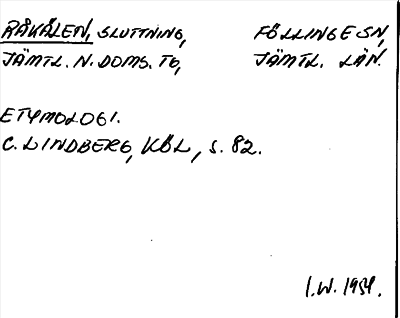 RÅKÅLEN, SLUTTNING, FÖLLINGE SN,
JÄMTL. N. DOMS. TG, JÄMTL. LÄN.
ETYMOLOGI.
C. LINDBERG, KÖL, S. 82.
I.W. 1954.